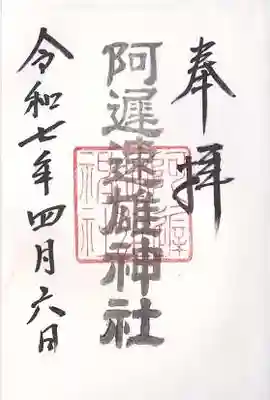 奉拝
阿遅速雄神社
令和七年四月六日